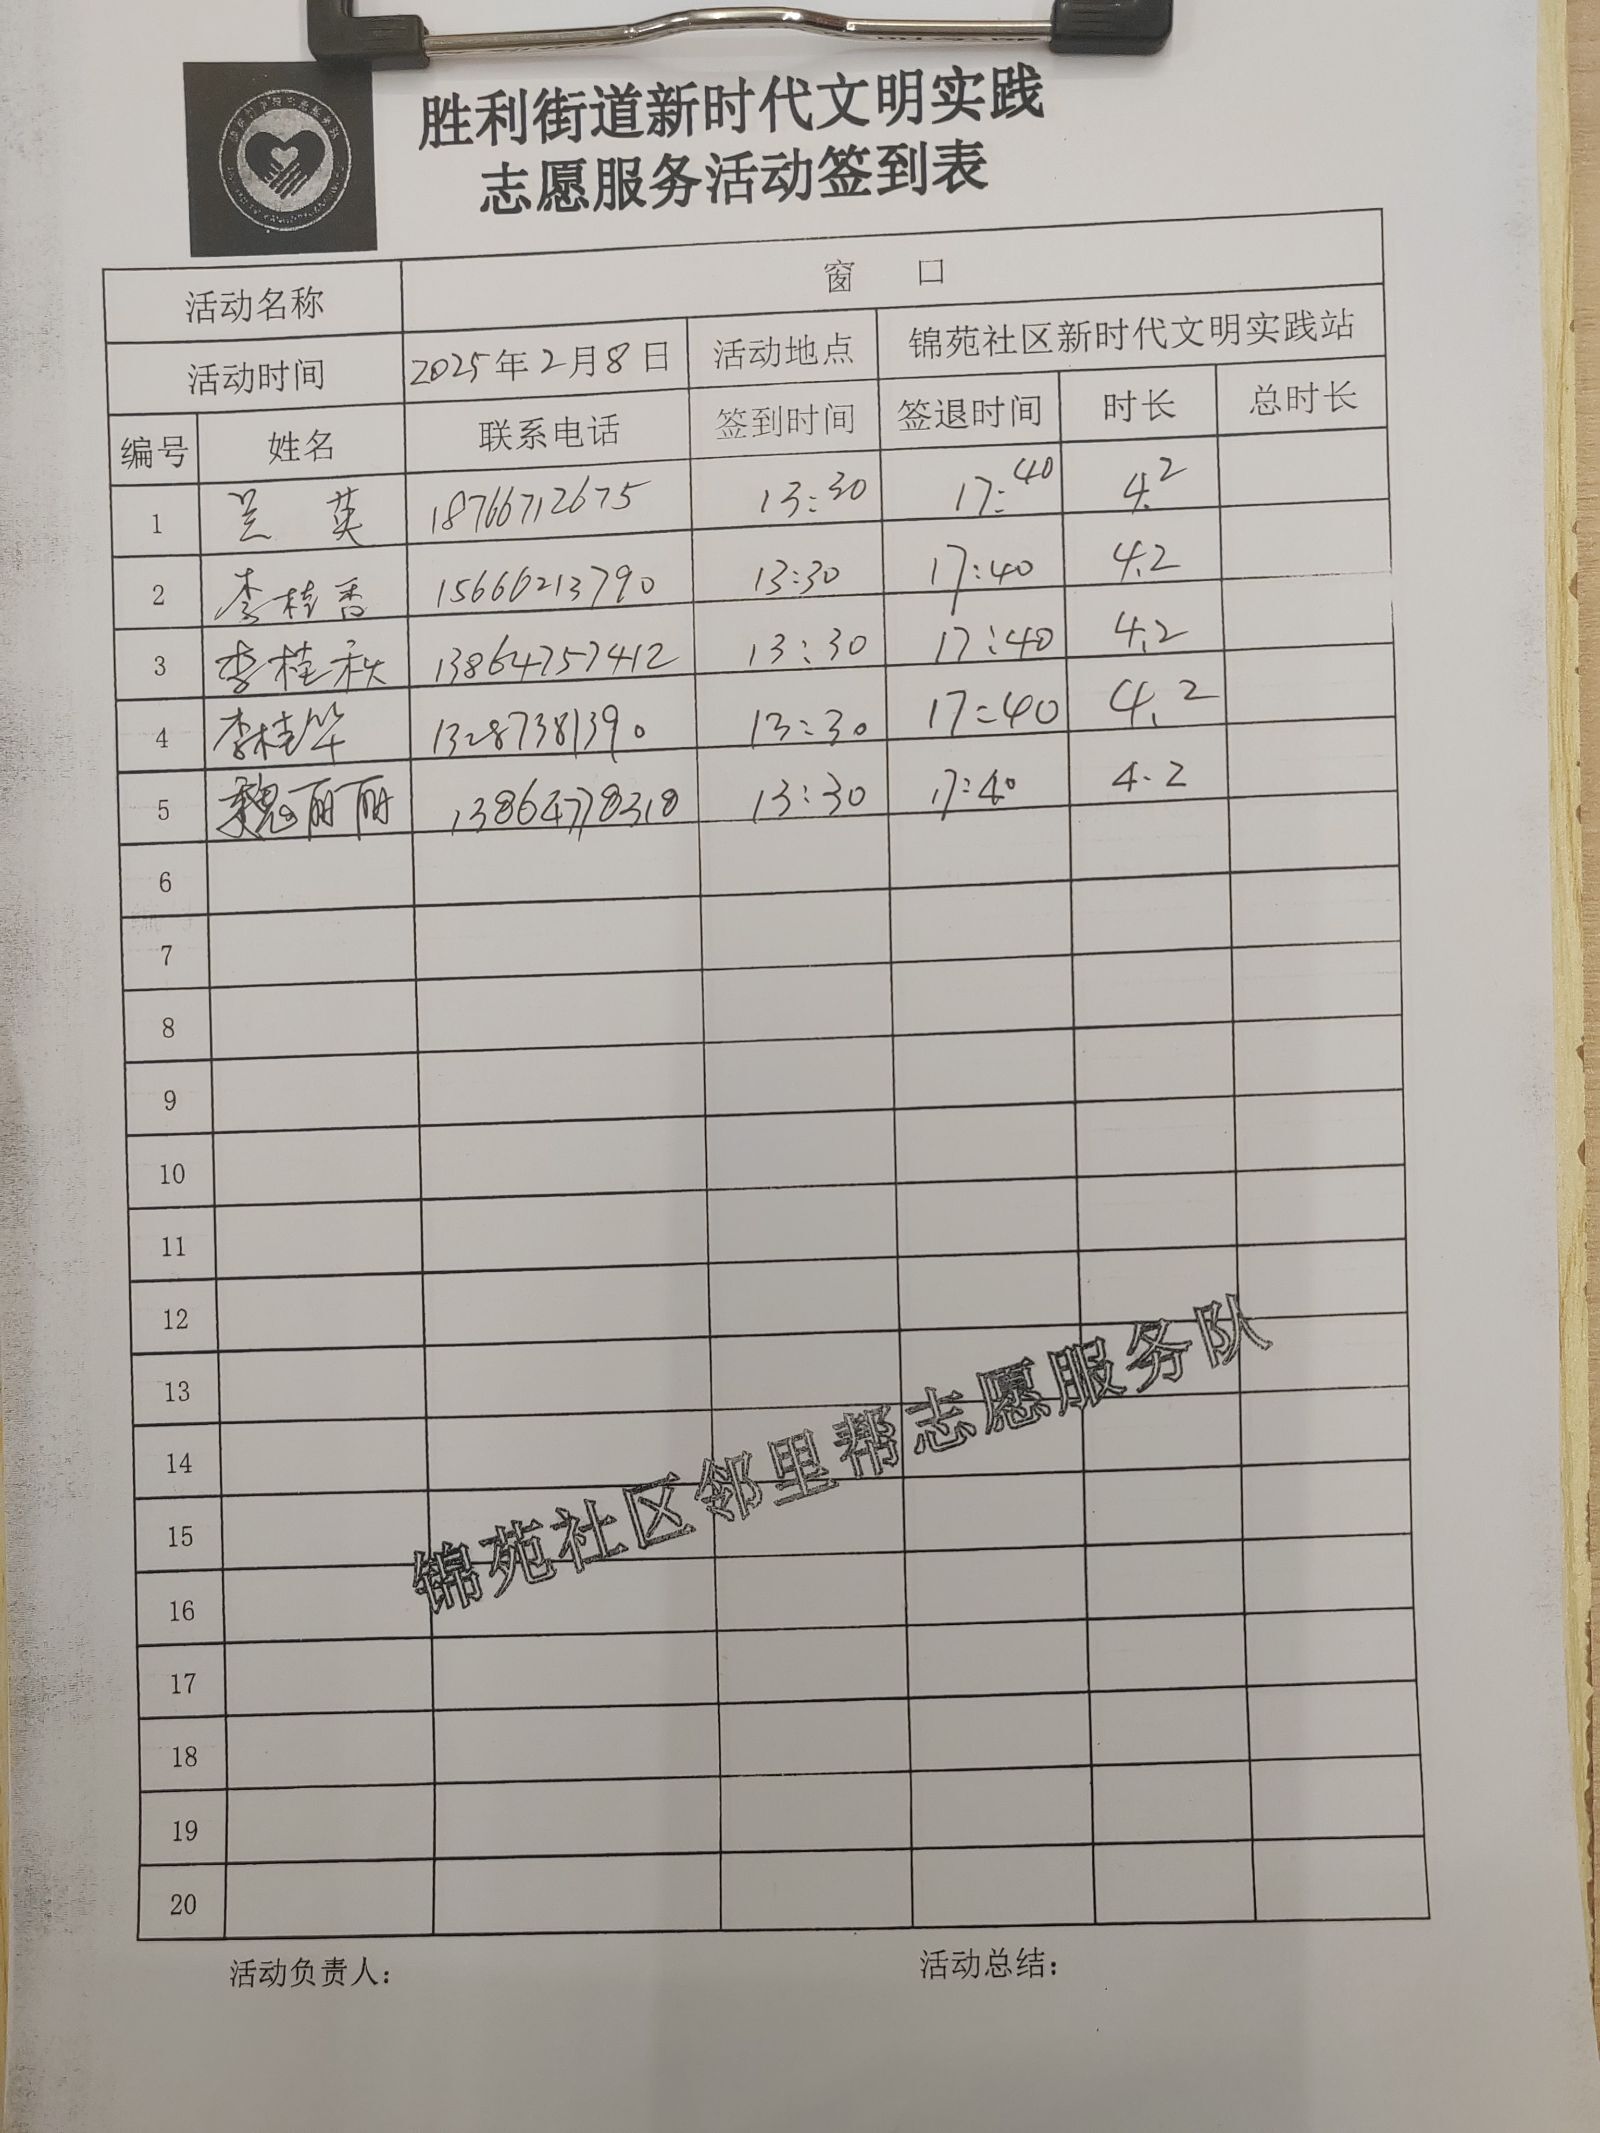 胜利街道新时代文明实践
志愿服务活动签到表
活动名称 窗 口
活动时间 2025年2月8日 活动地点 锦苑社区新时代文明实践站
编号 姓名 联系电话 签到时间 签退时间 时长 总时长
1 吴 英 18766712675 13:30 17:40 4.2
2 李桂香 15666213790 13:30 17:40 4.2
3 李桂秋 13864757412 13:30 17:40 4.2
4 李桂华 13287381390 13:30 17:40 4.2
5 魏丽丽 13864778318 13:30 17:40 4.2
6
7
8
9
10
11
12
13
14
15
16
17
18
19
20
锦苑社区邻里帮志愿服务队
活动负责人： 活动总结：